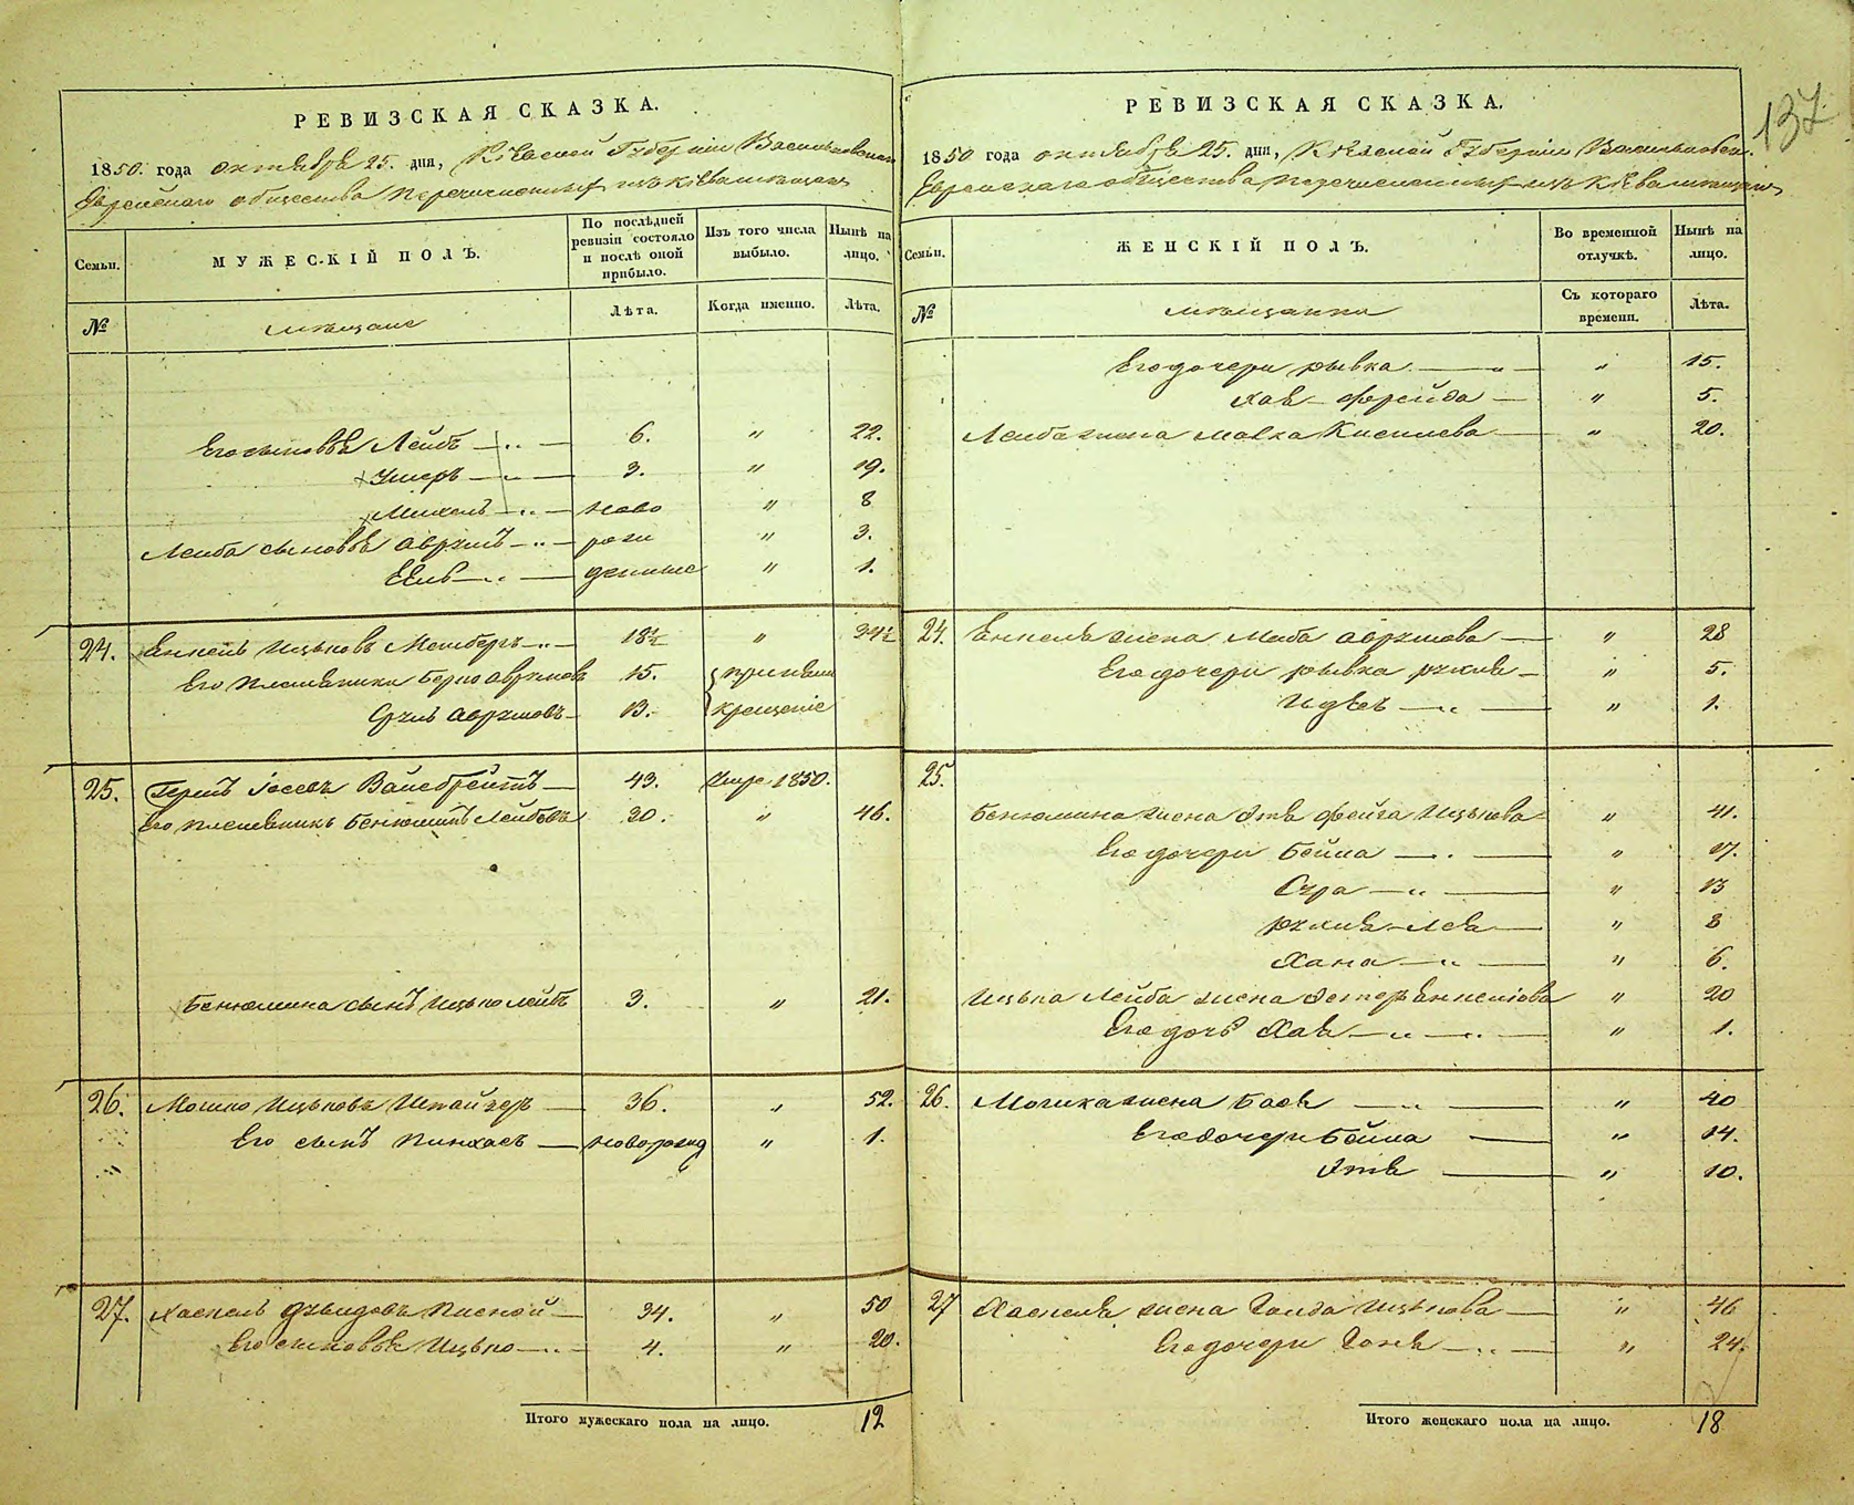 137
РЕВИЗСКАЯ СКАЗКА.
1850. года октября 25. дня, Кіевской Губерніи Васильковскаго
Еврейскаго общества перечисленныхъ изъ Кіева мещанъ
Семьи.
МУЖЕСКІЙ ПОЛЪ.
По послѣдней ревизіи состояло и послѣ оной прибыло.
Изъ того числа выбыло.
Нынѣ на лицо.
№
мещане
Лѣта.
Когда именно.
Лѣта.
Его сыновья Лейбъ 6. " 22.
Ушеръ 3. " 19.
Михель ново " 8
Лейба сыновья Аврумъ рож " 3.
денные " 1.
24. Янкель Ицьковъ 18½ " 34½
Его племянники Берко Аврумовъ 15. приняли
Сруль Аврумовъ 13. крещеніе
25. Іосевъ Вайсбрейтъ 43. Умре 1850.
Его племянникъ Бенюминъ Лейбовъ 30. " 46.
Бенюмина сынъ Ицько Лейбъ 3. " 21.
26. Мошко Ицьковъ 36. " 52.
Его сынъ Пинхасъ новорожд " 1.
27. Хаскель Дувидовъ 34. " 50
Его сыновья Ицько 4. " 20.
Итого мужескаго пола на лицо. 12
РЕВИЗСКАЯ СКАЗКА.
1850 года октября 25. дня, Кіевской Губерніи Васильковск.
Еврейскаго общества перечисленныхъ изъ Кіева мещанъ
Семьи.
ЖЕНСКІЙ ПОЛЪ.
Во временной отлучкѣ.
Нынѣ на лицо.
№
мещанки
Съ котораго времени.
Лѣта.
Его дочери Рывка " 15.
Хая Фрейда " 5.
Лейба жена Малка " 20.
24. Янкеля жена Аврумова " 28
Его дочери Рывка Рухля " 5.
" 1.
25.
Бенюмина жена Фейга Ицькова " 41.
Его дочери Бейла " 17.
Сура " 13
Рухля Лея " 8
Хана " 6.
Ицька Лейба жена Эстеръ Янкелiова " 20
Его дочь Хая " 1.
26. Мошка жена Бася " 40
Его дочери Бейла " 14.
" 10.
27 Хаскеля жена Голда Ицькова " 46
Его дочери " 24.
Итого женскаго пола на лицо. 18